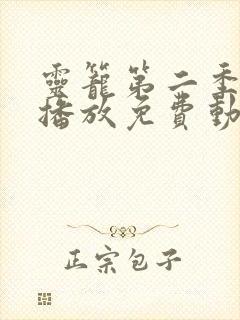 靈籠第二季
播放免費動
正宗包子